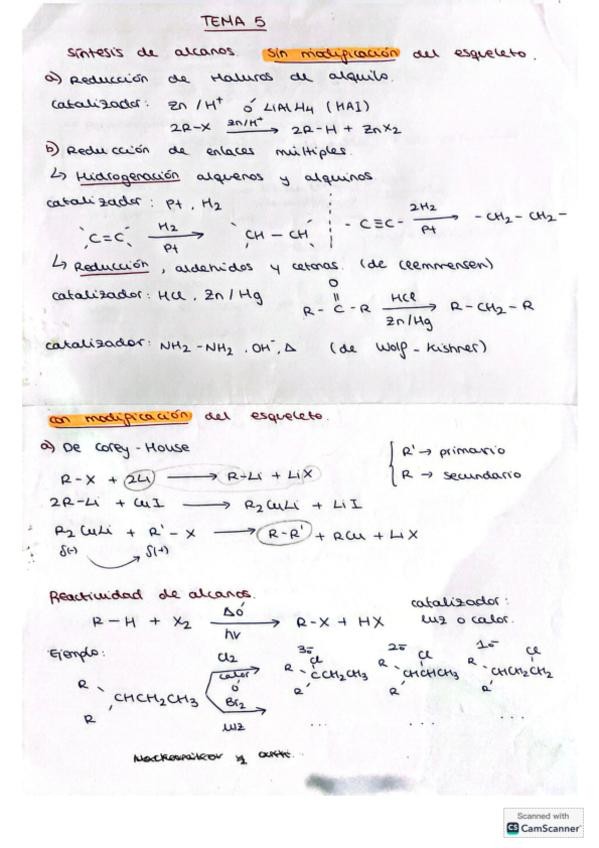 TEMA 5
síntesis de alcanos. sin modificación del esqueleto.
a) Reducción de Haluros de alquilo.
catalizador: Zn/H⁺ ó LiAlH₄ (HAI)
2R-X —Zn/H⁺→ 2R-H + ZnX₂
b) Reducción de enlaces múltiples.
↳ Hidrogenación alquenos y alquinos
catalizador: Pt, H₂
C=C —H₂/Pt→ CH-CH
-C≡C- —2H₂/Pt→ -CH₂-CH₂-
↳ Reducción, aldehidos y cetonas. (de Clemmensen)
catalizador: HCl, Zn/Hg
O
R-C-R —HCl, Zn/Hg→ R-CH₂-R
catalizador: NH₂-NH₂, OH⁻, Δ (de Wolf-Kishner)
con modificación del esqueleto.
a) De Corey-House
R-X + 2Li → R-Li + LiX
R' → primario
R → secundario
2R-Li + CuI → R₂CuLi + LiI
R₂CuLi + R'-X → R-R' + RCu + LiX
δ(-) δ(+)
Reactividad de alcanos.
R-H + X₂ —Δ ó hv→ R-X + HX
catalizador:
luz o calor.
Ejemplo:
R
R
CHCH₂CH₃
Cl₂
calor
ó
Br₂
luz
3º
R
R'
Cl
CCH₂CH₃
2º
R
R'
Cl
CHCHCH₃
1º
R
R'
Cl
CHCH₂CH₂
... ... ...
Scanned with
CS CamScanner